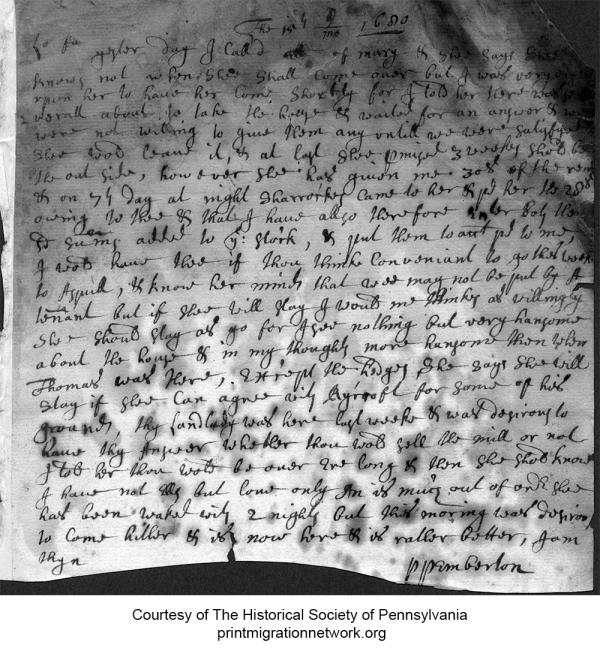 The 15th 8 mo 1680
yester day I Call'd of mary & shee says shee
knows not when shee shall Come over but I was very
upon her to have her Come shortly for I told her there was
severall about to take the house & waited for an answer & wee
were not willing to give them any untill we were satisfyed
shee wold leave it, & at last shee pmised 3 weeks shold be
the out side, however shee has given me 30s of the rent
& on 7th day at night Sharrocke Came to her & pd her the 28s
owing to thee & that I have allso therefore both the
sd sums added to yr stock, & put them to acct pd to me,
I wold have thee if thou thinke Conveniant to go this weeke
to Aspull, & know her minde that wee may not be put by A
tenant but if shee will stay I would me thinkes as willingly
shee should stay as go for I see nothing but very hansome
about the house & in my thoughts more hansome then when
Thomas was there, Except the hedges, shee says shee will
stay if shee Can agree with for some of his
ground, thy landlady was here last weeke & was desirous to
have thy Answer whether thou wold sell the mill or not
I told her thou wold be over ere long & then shee shold know
I have not Els but love only An is much out of order shee
has been waked with 2 nights but this morning was desirous
to Come hither & is now here & is rather better, I am
thyn
ppemberton
Courtesy of The Historical Society of Pennsylvania
printmigrationnetwork.org